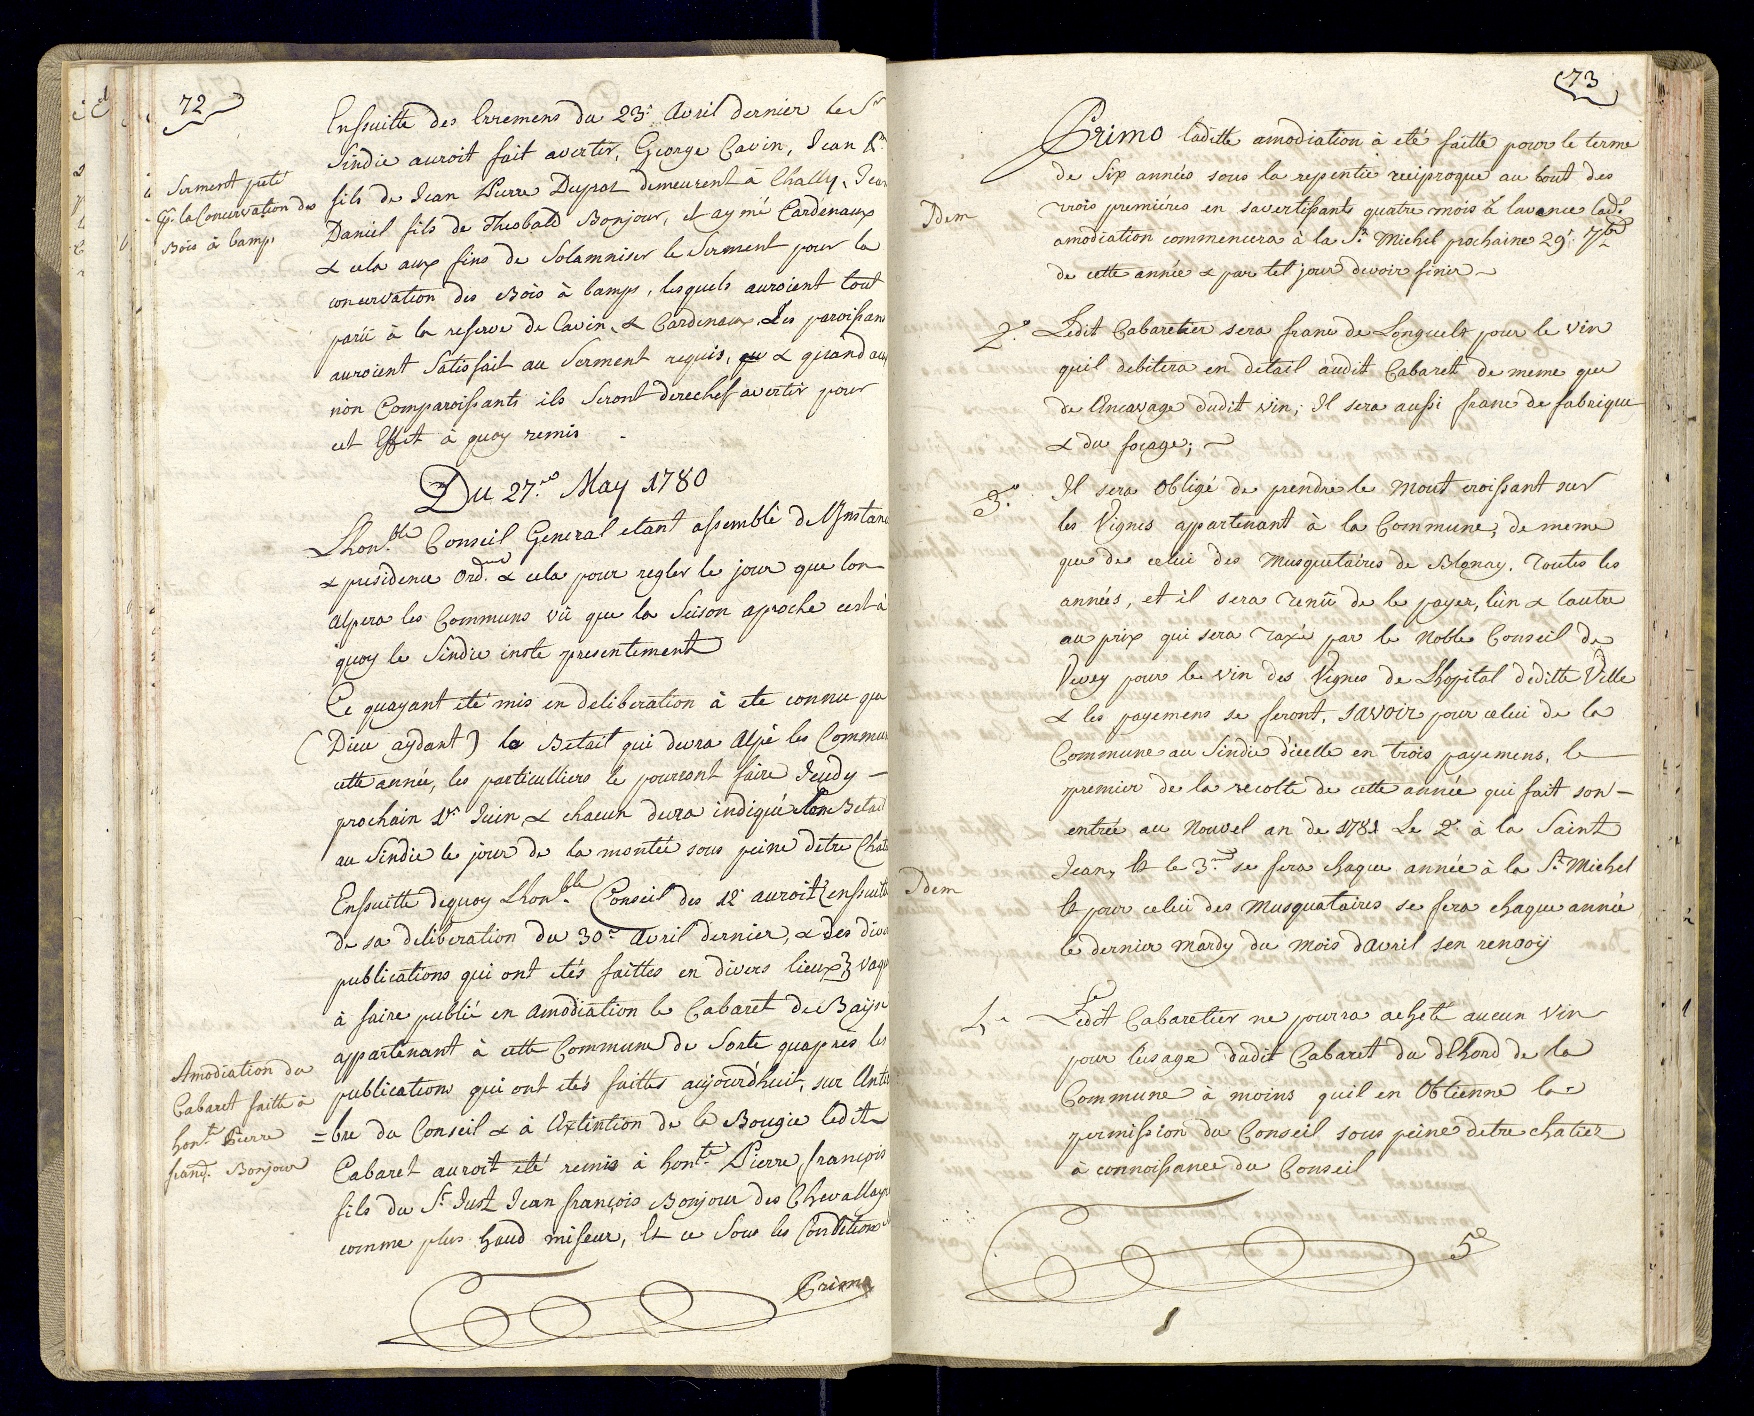 72
Serment prêté
pr. la Concervation des
Bois à bamp.
Ensuitte des Erremens du 23e. Avril dernier le Sr.
Sindic auroit fait avertir, George Cavin, Jean Pre.
fils de Jean Pierre Dupraz demeurent à Chally, Jean
Daniel fils de Theobald Bonjour, et aymé Cardinaux
& cela aux fins de Solamniser le Serment pour la
concervation des Bois à bamps, lesquels auroient tout
parû à la reserve de Cavin, & Cardinaux. Les paroissants
auroient Satisfait au Serment requis, & quand aux
non Comparoissants ils Seront derechef avertir pour
cet Effet à quoy remis.
Du 27.me May 1780
Lhon.ble Conseil General etant assemblé de l'Instance
& presidence Ord.re & cela pour regler le jour que lon
alpera les Communs vû que la Saison aproche cest à
quoy le Sindic inste presentement
Ce quayant eté mis en deliberation à ete connu que
(Dieu aydant) le Betail qui devra Alpé les Communs
cette année, les particulliers le pourront faire Jeudy
prochain 1er. Juin, & chacun devra indiqué son Betail
au Sindic le jour de la montée sous peine d'etre Chatié
Ensuitte dequoy Lhon.ble Conseil des 12 auroit (ensuite
de sa deliberation du 30e. Avril dernier, & des divers
publications qui ont etés faittes en divers lieux) vaqué
à faire publié en amodiation le Cabaret de Baÿse
appartenant à cette Commune de Sorte quapres les
publications qui ont etés faittes aujourd'huit, sur Antic
=bre du Conseil & à Extinction de la Bougie ledit
Cabaret auroit eté remis à hon.te Pierre françois
fils du Sr. Just. Jean françois Bonjour des Chevalleyres
comme plus haud miseur, Et ce Sous les Conditions
Amodiation du
Cabaret faitte à
hon.te Pierre
franç. Bonjour
Primo
73
Primo laditte amodiation à eté faitte pour le terme
de Six années sous la repentie reciproque au bout des
trois premiéres en savertissants quatre mois à lavance lad.e
amodiation commencera à la St. Michel prochaine 29e. 7bre
de cette année & par tel jour devoir finir
Idem
2°. Ledit Cabaretier sera franc de Longuelt pour le vin
quil debitera en detail audit Cabaret de meme que
de l'Encavage dudit vin; Il sera aussi franc de fabrique
& du focage;
3°. Il sera Obligé de prendre le mout croissant sur
les Vignes appartenant à la Commune, de meme
que de celui des Musquetaires de Blonay. Toutes les
années, et il sera tenû de le payer, l'un & lautre
au prix qui sera taxé par le Noble Conseil de
Vevey pour le vin des Vignes de Lhopital deditte Ville
& les payemens se feront, savoir pour celui de la
Commune au Sindic d'icelle en trois payemens, le
premier de la recolte de cette année qui fait son
entrée au Nouvel an de 1781 Le 2e. à la Saint
Jean, Et le 3.me se fera chaque année à la St. Michel
Et pour celui des Musquataires se fera chaque année
le dernier mardy du mois d'avril sen renvoÿ
Idem
4e. Ledt Cabaretier ne pourra acheté aucun vin
pour lusage dudit Cabaret du d'Ehord de la
Commune à moins quil en Obtienne la
permission du Conseil sous peine detre chatier
à connoissance du Conseil
5°